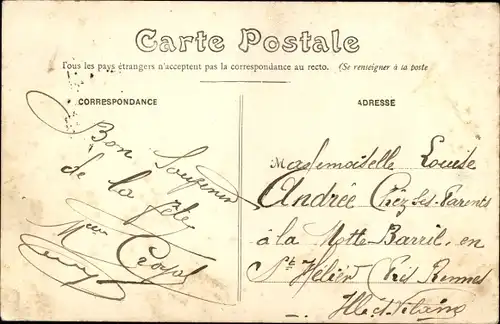 Carte Postale
Tous les pays étrangers n'acceptent pas la correspondance au recto. (Se renseigner à la poste
CORRESPONDANCE
ADRESSE
Bon Souvenir
de la fête
Mademoiselle Louise
Andrée Chez ses Parents
à la Motte Barril en
St Hélier Près Rennes
Ille et Vilaine